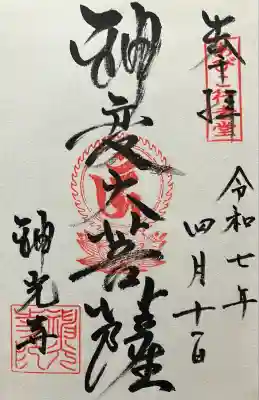 奉拝
行者堂
令和七年
四月十一日
神変大菩薩
神光寺